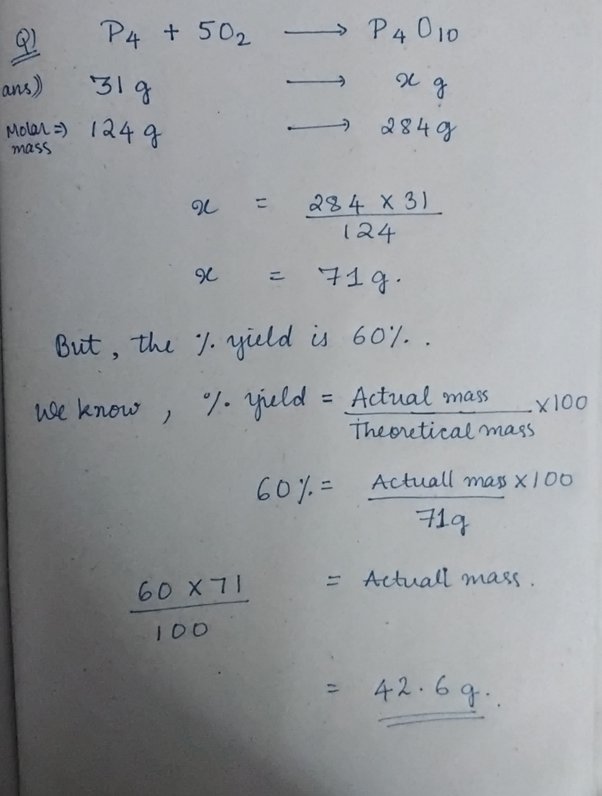 Q1 P4 + 5O2 ⟶ P4O10
ans)) 31 g ⟶ x g
Molar mass ⇒ 124 g ⟶ 284 g
x = 284 × 31 / 124
x = 71 g.
But, the % yield is 60% .
We know , % yield = Actual mass / Theoretical mass × 100
60% = Actuall mass × 100 / 71g
60 × 71 / 100 = Actuall mass.
= 42.6 g.